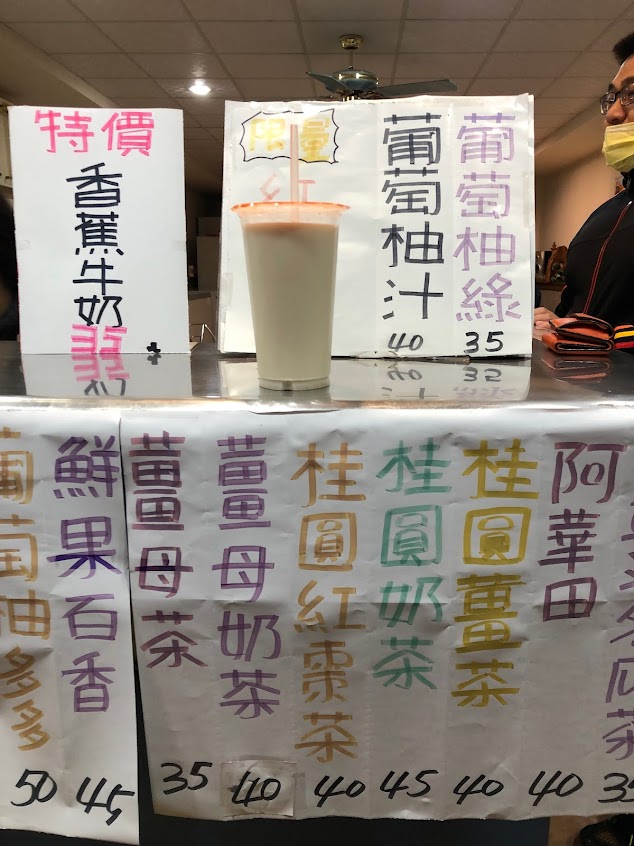 特價
香蕉牛奶
35
限量
紅
葡萄柚汁
40
葡萄柚綠
35
葡萄柚多多
50
鮮果百香
45
薑母茶
35
薑母奶茶
40
桂圓紅棗茶
40
桂圓奶茶
45
桂圓薑茶
40
阿華田
40
冬瓜茶
35